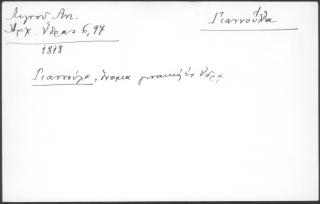 Λιγνοῦ Ἀν.
Ἀρχ. Ὕδρας 6,97
1818
Γιαννούλα
Γιαννούλα, ὄνομα γυναικὸς ἐν Ὕδρᾳ